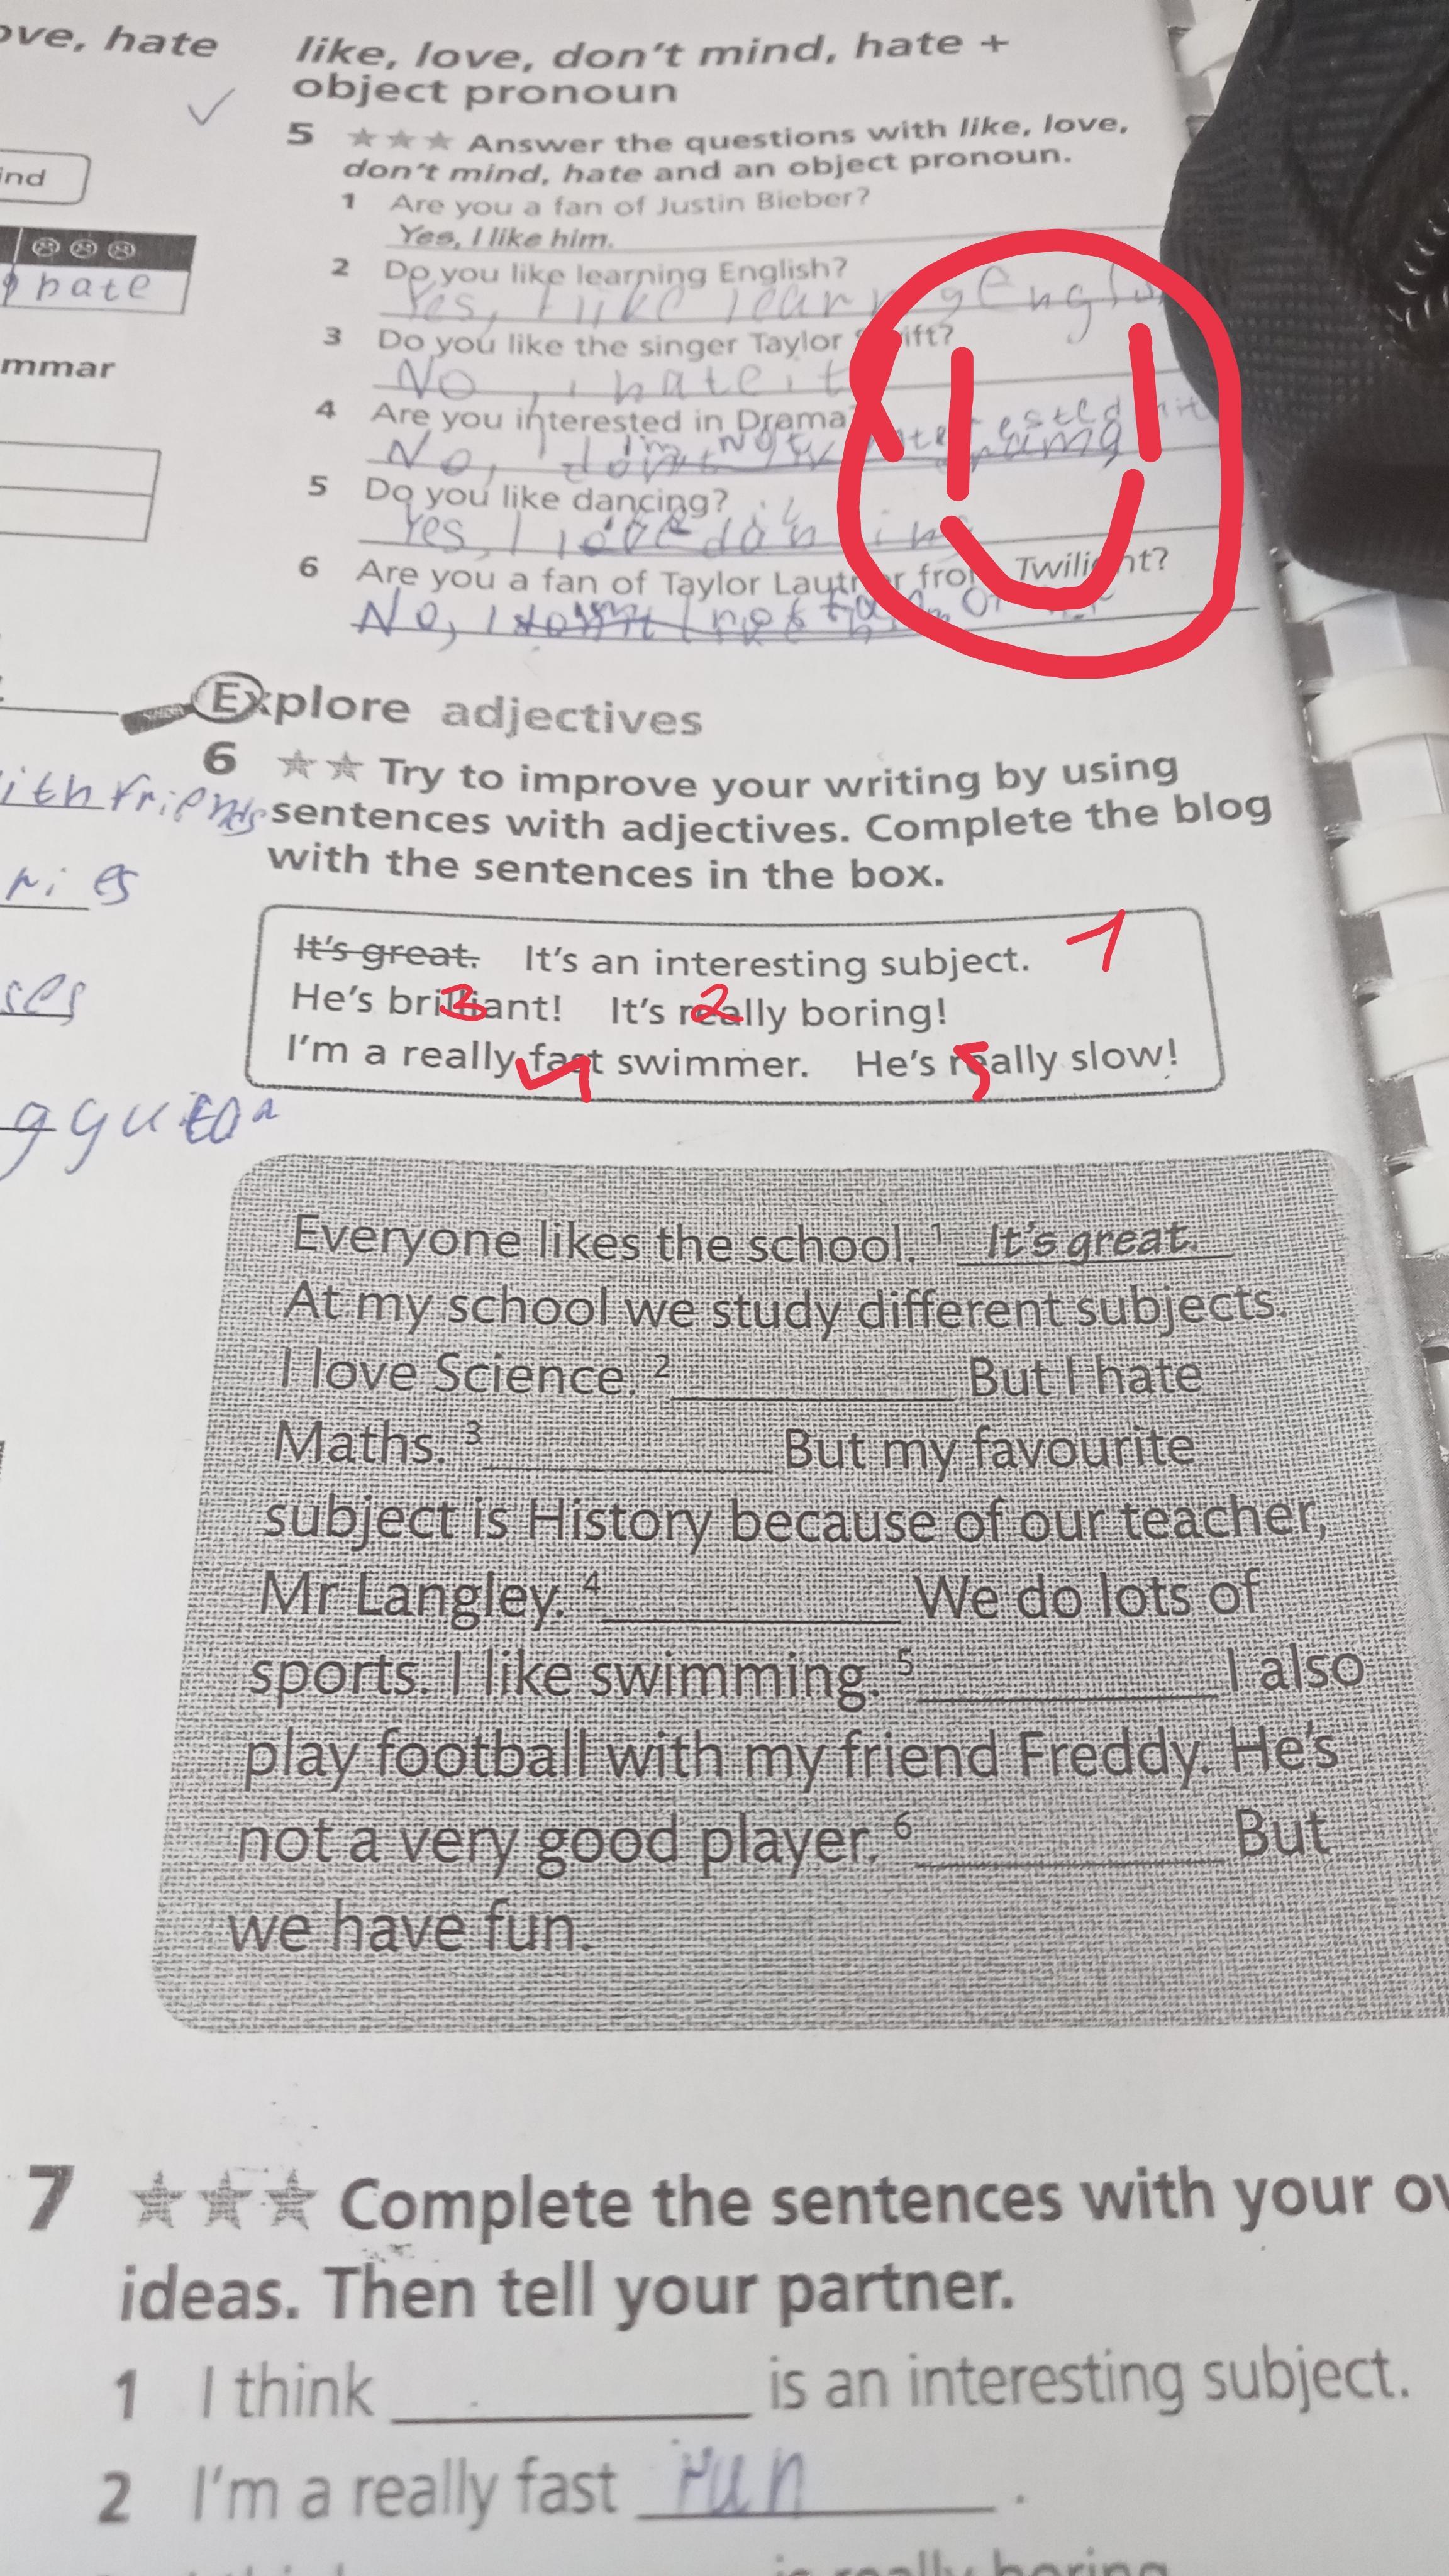 ove, hate
ind
hate
mmar
ith friends
ries
ses
like, love, don't mind, hate +
object pronoun
5 ★★★ Answer the questions with like, love,
don't mind, hate and an object pronoun.
1 Are you a fan of Justin Bieber?
Yes, I like him.
2 Do you like learning English?
Yes, I like
3 Do you like the singer Taylor ift?
No, I hate it
4 Are you interested in Drama
No,
5 Do you like dancing?
Yes, I love
6 Are you a fan of Taylor Lautner from Twilight?
No, I
Explore adjectives
6 ★★ Try to improve your writing by using
sentences with adjectives. Complete the blog
with the sentences in the box.
It's great. It's an interesting subject. 1
He's brilliant! 3 It's really boring! 2
I'm a really fast swimmer. 4 He's really slow! 5
Everyone likes the school. 1 It's great.
At my school we study different subjects.
I love Science. 2 But I hate
Maths. 3 But my favourite
subject is History because of our teacher,
Mr Langley. 4 We do lots of
sports. I like swimming. 5 I also
play football with my friend Freddy. He's
not a very good player. 6 But
we have fun.
7 ★★★ Complete the sentences with your ow
ideas. Then tell your partner.
1 I think is an interesting subject.
2 I'm a really fast run.
is really boring